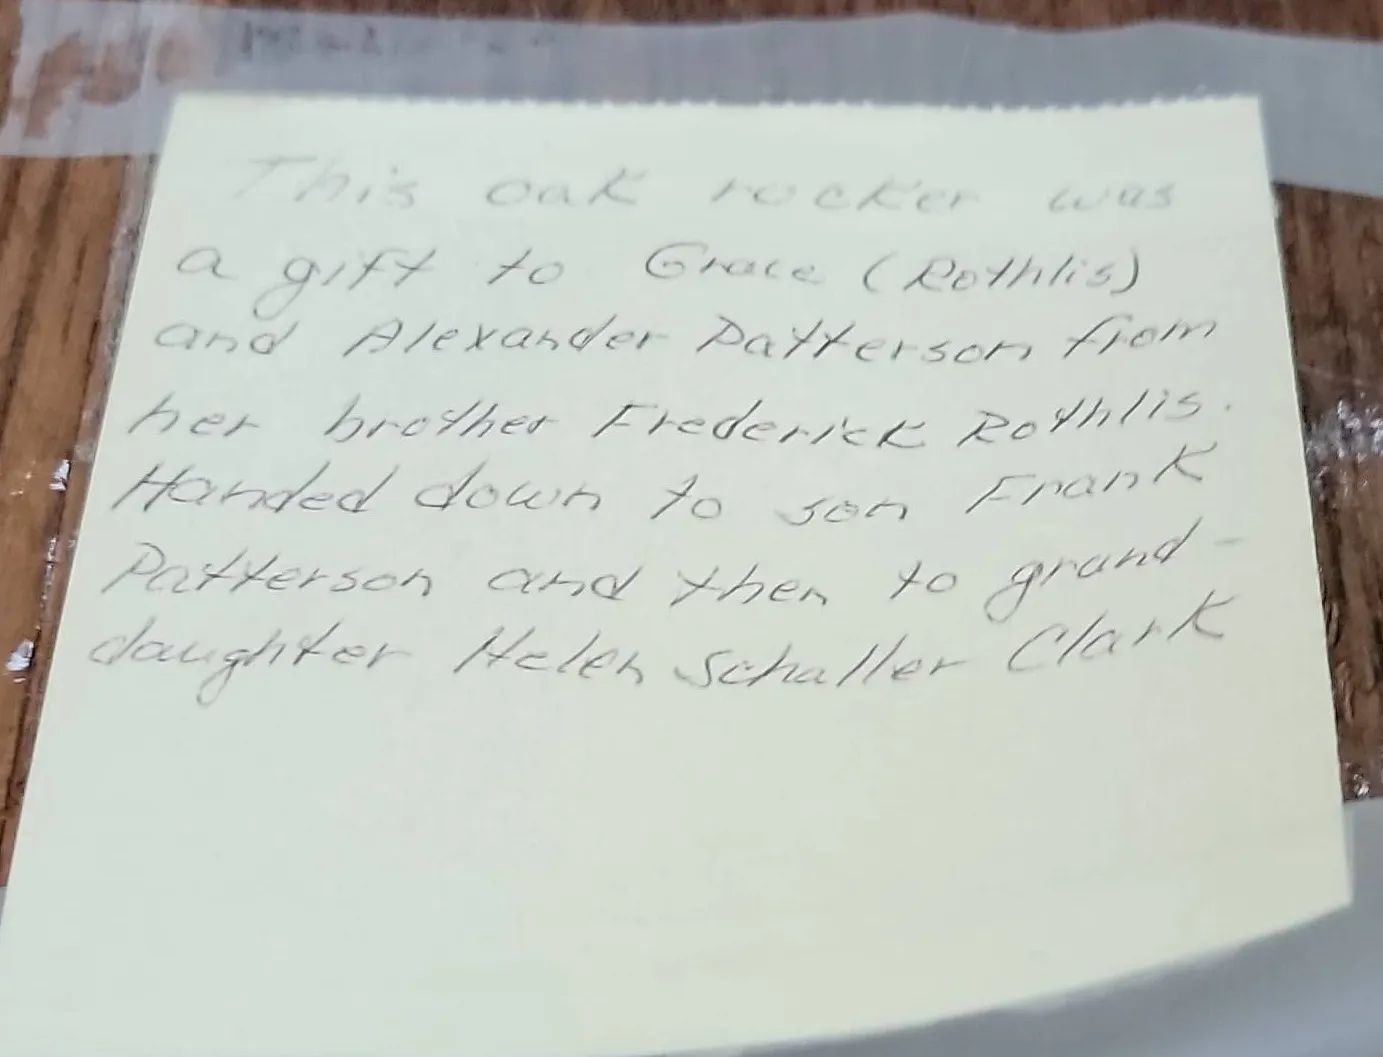 This oak rocker was
a gift to Grace (Rothlis)
and Alexander Patterson from
her brother Frederick Rothlis.
Handed down to son Frank
Patterson and then to grand-
daughter Helen Schaller Clark